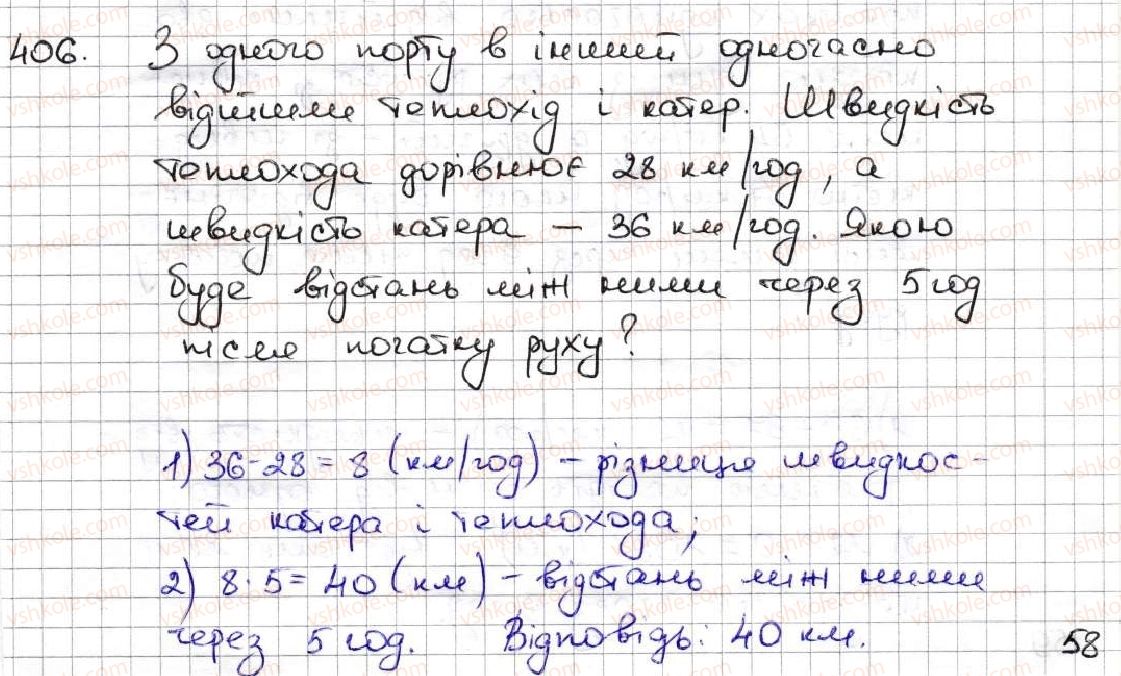 406. З одного порту в інший одночасно
відійшли теплохід і катер. Швидкість
теплохода дорівнює 28 км/год, а
швидкість катера – 36 км/год. Якою
буде відстань між ними через 5 год
після початку руху?
1) 36-28 = 8 (км/год) – різниця швиднос-
тей катера і теплохода;
2) 8·5 = 40 (км) – відстань між ними
через 5 год. Відповідь: 40 км.
58